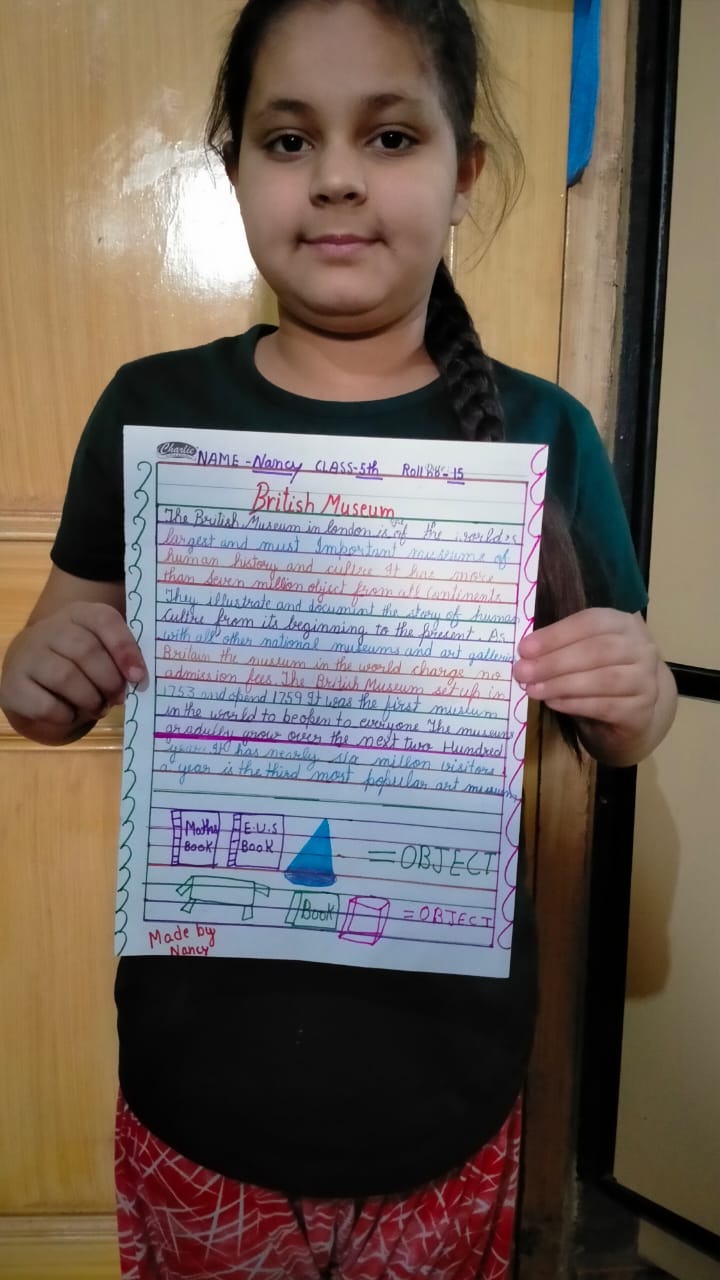 Charlie
NAME - Nancy CLASS-5th Roll - 15
British Museum
The British Museum in london is of the world's
largest and must Important museums of
human history and cultre It has more
than Seven million object from all continents
They illustrate and document the story of human
Cultre from its beginning to the present. As
with all other national museums and art galleries
Britain the musum in the world charge no
admission fees The British Museum set up in
1753 and opend 1759 It was the first museum
in the world to be open to everyone The museum
gradully grow over the next two Hundred
years It has nearly six million visitors
a year is the third most popular art museum
Maths Book E.U.S Book = OBJECT
Book = OBJECT
Made by
Nancy